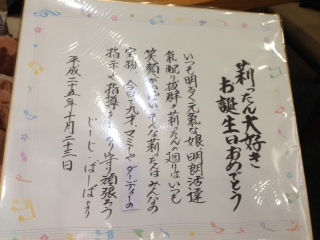 莉ったん大好き
お誕生日おめでとう
いつも明るく元気な娘、明朗活達
気配り抜群、莉ったんの廻りはいつも
笑顔がいっぱいそんな莉ったんはみんなの
宝物、今日で九才、マミーやダーディーの
指示や指導をしっかり守り頑張ろう
じーじ、ばーばより
平成二十五年十月二十三日